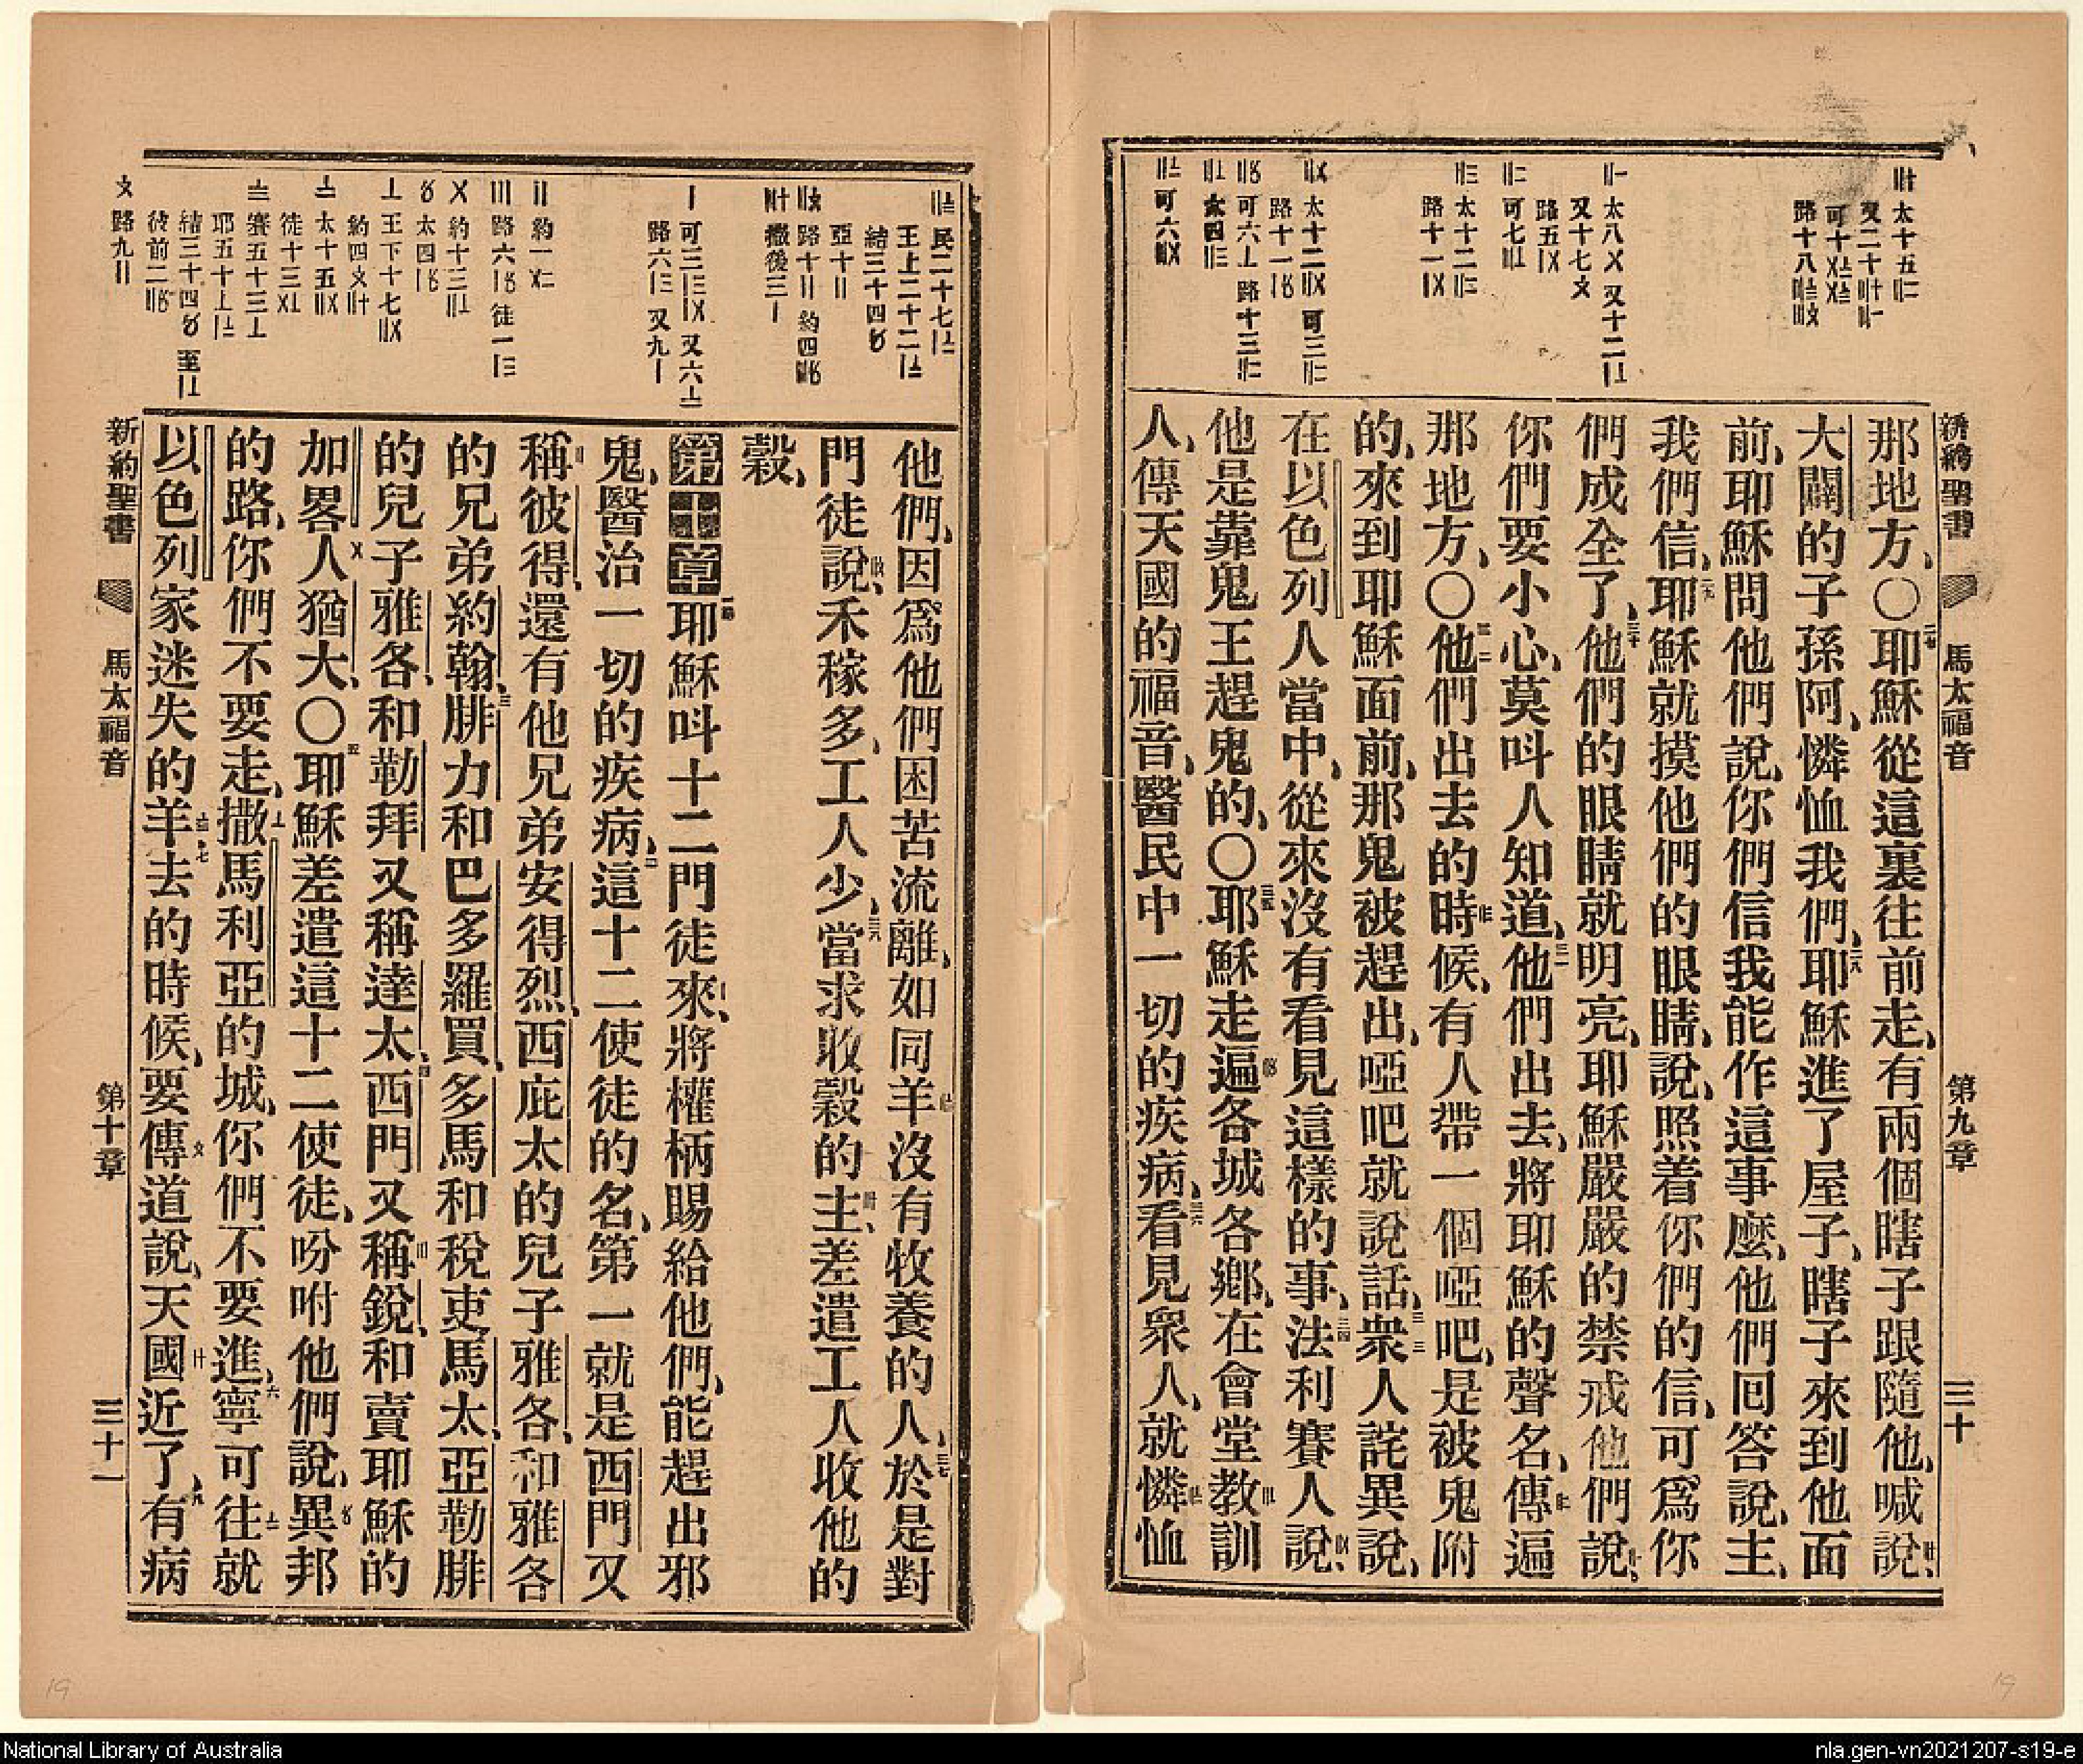 新約聖書 馬太福音 第九章 三十
那地方、〇耶穌從這裏往前走、有兩個瞎子跟隨他、喊說、
大闢的子孫阿、憐恤我們、耶穌進了屋子、瞎子來到他面
前、耶穌問他們說、你們信我能作這事麼、他們回答說、主、
我們信、耶穌就摸他們的眼睛、說、照着你們的信、可爲你
們成全了、他們的眼睛就明亮、耶穌嚴嚴的禁戒他們說、
你們要小心、莫呌人知道、他們出去、將耶穌的聲名、傳遍
那地方、〇他們出去的時候、有人帶一個啞吧、是被鬼附
的、來到耶穌面前、那鬼被趕出、啞吧就說話、衆人詫異說、
在以色列人當中、從來沒有看見這樣的事、法利賽人說、
他是靠鬼王趕鬼的、〇耶穌走遍各城各鄉、在會堂教訓
人、傳天國的福音、醫民中一切的疾病、看見衆人、就憐恤
他們、因爲他們困苦流離、如同羊沒有牧養的人、於是對
門徒說、禾稼多、工人少、當求收穀的主、差遣工人收他的
穀、
第十章耶穌呌十二門徒來、將權柄賜給他們、能趕出邪
鬼、醫治一切的疾病、這十二使徒的名、第一就是西門又
稱彼得、還有他兄弟安得烈、西庇太的兒子雅各、和雅各
的兄弟約翰、腓力和巴多羅買、多馬和稅吏馬太、亞勒腓
的兒子雅各、和勒拜又稱達太、西門又稱銳、和賣耶穌的
加畧人猶大、〇耶穌差遣這十二使徒、吩咐他們說、異邦
的路、你們不要走、撒馬利亞的城、你們不要進、寧可往就
以色列家迷失的羊去的時候、要傳道說、天國近了、有病
新約聖書 馬太福音 第十章 三十一
19
19
National Library of Australia
nla.gen-vn2021207-s19-e